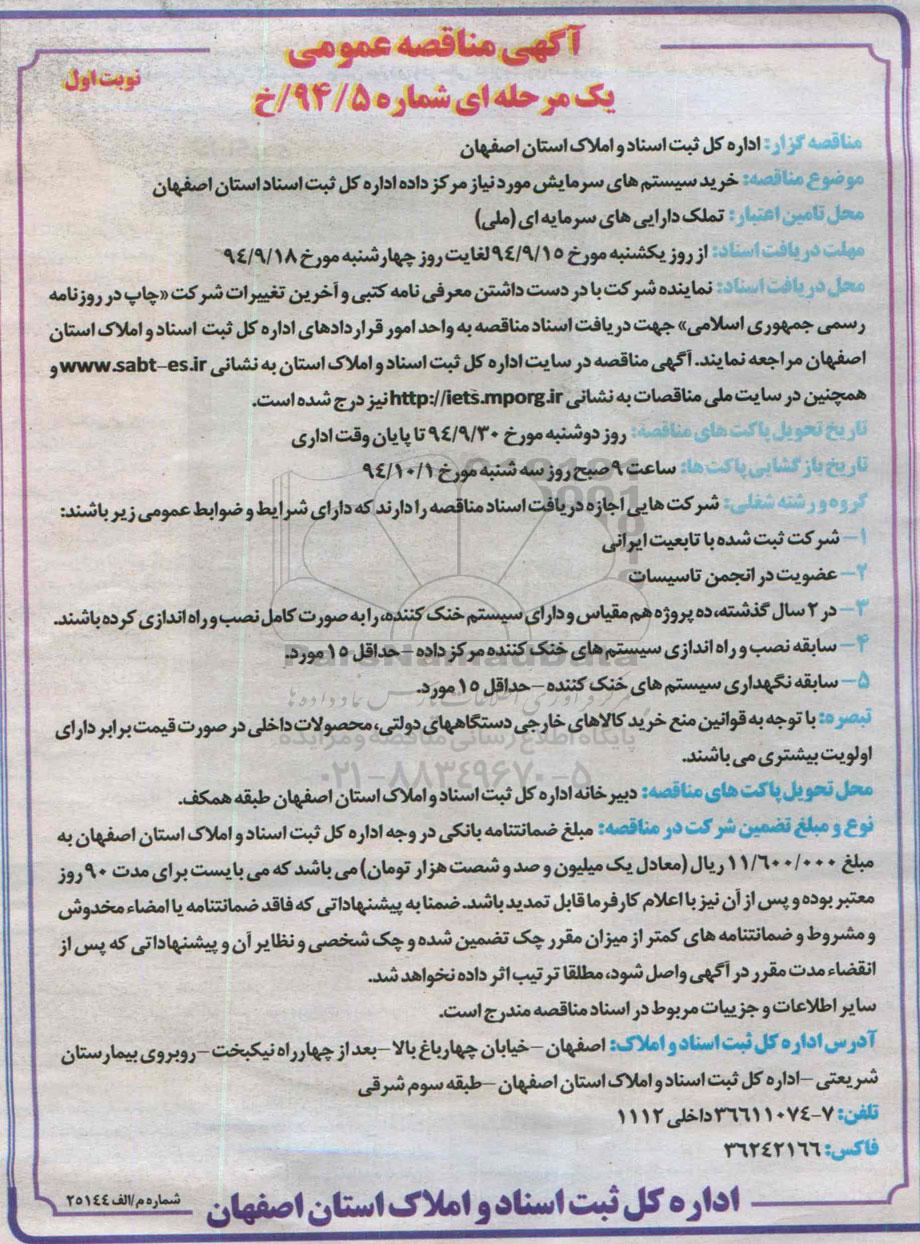 آگهی مناقصه عمومی
نوبت اول
یک مرحله ای شماره ۹۴/۵/خ
مناقصه گزار: اداره کل ثبت اسناد و املاک استان اصفهان
موضوع مناقصه: خرید سیستم های سرمایش مورد نیاز مرکز داده اداره کل ثبت اسناد استان اصفهان
محل تامین اعتبار: تملک دارایی های سرمایه ای (ملی)
مهلت دریافت اسناد: از روز یکشنبه مورخ ۹٤/۹/۱٥ لغایت روز چهارشنبه مورخ ۹٤/۹/۱۸
محل دریافت اسناد: نماینده شرکت با در دست داشتن معرفی نامه کتبی و آخرین تغییرات شرکت «چاپ در روزنامه
رسمی جمهوری اسلامی» جهت دریافت اسناد مناقصه به واحد امور قراردادهای اداره کل ثبت اسناد و املاک استان
اصفهان مراجعه نمایند. آگهی مناقصه در سایت اداره کل ثبت اسناد و املاک استان به نشانی www.sabt-es.ir و
همچنین در سایت ملی مناقصات به نشانی http://iets.mporg.ir نیز درج شده است.
تاریخ تحویل پاکت های مناقصه: روز دوشنبه مورخ ۹٤/۹/۳۰ تا پایان وقت اداری
تاریخ بازگشایی پاکت ها: ساعت ۹ صبح روز سه شنبه مورخ ۹٤/۱۰/۱
گروه و رشته شغلی: شرکت هایی اجازه دریافت اسناد مناقصه را دارند که دارای شرایط و ضوابط عمومی زیر باشند:
۱- شرکت ثبت شده با تابعیت ایرانی
۲- عضویت در انجمن تاسیسات
۳- در ۲ سال گذشته، ده پروژه هم مقیاس و دارای سیستم خنک کننده، را به صورت کامل نصب و راه اندازی کرده باشند.
۴- سابقه نصب و راه اندازی سیستم های خنک کننده مرکز داده - حداقل ۱٥ مورد.
ParsNamadData
۵- سابقه نگهداری سیستم های خنک کننده - حداقل ۱٥ مورد.
تبصره: با توجه به قوانین منع خرید کالاهای خارجی دستگاههای دولتی، محصولات داخلی در صورت قیمت برابر دارای
پایگاه اطلاع رسانی مناقصه و مزایده
اولویت بیشتری می باشند.
۰۲۱-۸۸۳۴۹۶۷۰-۵
محل تحویل پاکت های مناقصه: دبیرخانه اداره کل ثبت اسناد و املاک استان اصفهان طبقه همکف.
نوع و مبلغ تضمین شرکت در مناقصه: مبلغ ضمانتنامه بانکی در وجه اداره کل ثبت اسناد و املاک استان اصفهان به
مبلغ ۱۱/٦۰۰/۰۰۰ ریال (معادل یک میلیون و صد و شصت هزار تومان) می باشد که می بایست برای مدت ۹۰ روز
معتبر بوده و پس از آن نیز با اعلام کارفرما قابل تمدید باشد. ضمنا به پیشنهاداتی که فاقد ضمانتنامه یا امضاء مخدوش
و مشروط و ضمانتنامه های کمتر از میزان مقرر چک تضمین شده و چک شخصی و نظایر آن و پیشنهاداتی که پس از
انقضاء مدت مقرر در آگهی واصل شود، مطلقا ترتیب اثر داده نخواهد شد.
سایر اطلاعات و جزییات مربوط در اسناد مناقصه مندرج است.
آدرس اداره کل ثبت اسناد و املاک: اصفهان - خیابان چهارباغ بالا - بعد از چهارراه نیکبخت - روبروی بیمارستان
شریعتی - اداره کل ثبت اسناد و املاک استان اصفهان - طبقه سوم شرقی
تلفن: ۷-۳٦٦۱۱۰۷٤ داخلی ۱۱۱۲
فاکس: ۳٦۲٤۲۱٦٦
اداره کل ثبت اسناد و املاک استان اصفهان
شماره م/الف ۲٥۱٤٤